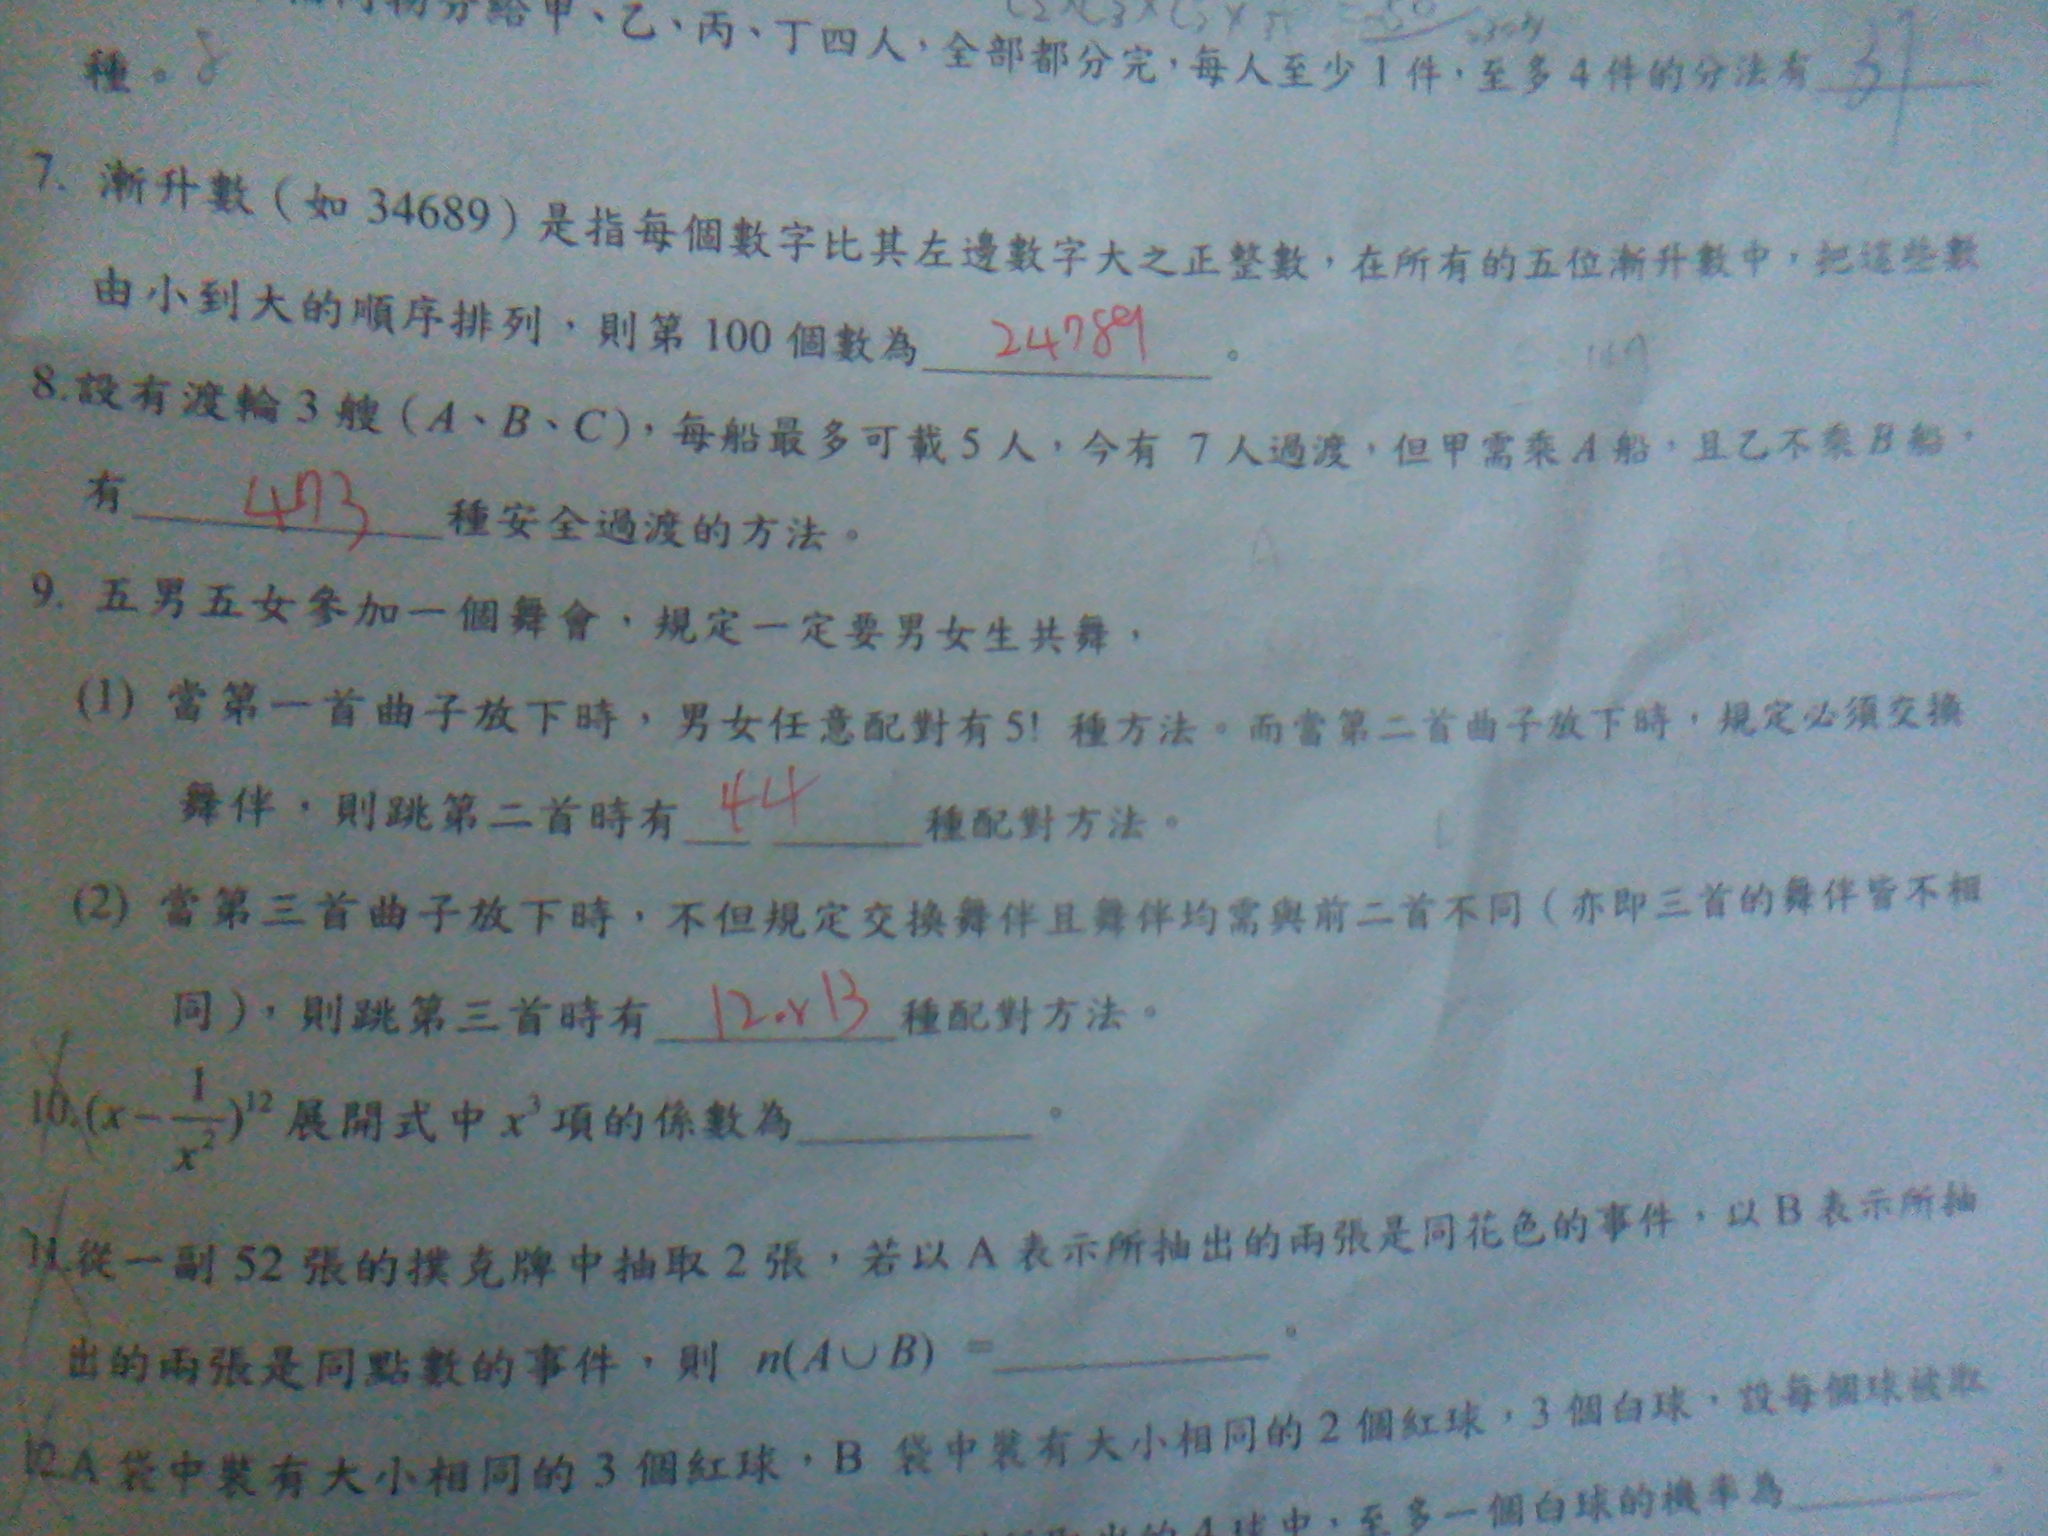 物分給甲、乙、丙、丁四人，全部都分完，每人至少1件，至多4件的分法有 37
種。8
7. 漸升數（如34689）是指每個數字比其左邊數字大之正整數，在所有的五位漸升數中，把這些數
由小到大的順序排列，則第100個數為 24789 。
8.設有渡輪3艘（A、B、C），每船最多可載5人，今有 7人過渡，但甲需乘A船，且乙不乘B船，
有 473 種安全過渡的方法。
9. 五男五女參加一個舞會，規定一定要男女生共舞，
(1) 當第一首曲子放下時，男女任意配對有5! 種方法。而當第二首曲子放下時，規定必須交換
舞伴，則跳第二首時有 44 種配對方法。
(2) 當第三首曲子放下時，不但規定交換舞伴且舞伴均需與前二首不同（亦即三首的舞伴皆不相
同），則跳第三首時有 12 or 13 種配對方法。
10.(x-1/x²)¹² 展開式中 x³ 項的係數為 。
11.從一副52張的撲克牌中抽取2張，若以A表示所抽出的兩張是同花色的事件，以B表示所抽
出的兩張是同點數的事件，則 n(A∪B) = 。
12.A 袋中裝有大小相同的3個紅球，B 袋中裝有大小相同的2個紅球，3個白球，設每個球被取
出的4球中，至多一個白球的機率為 。